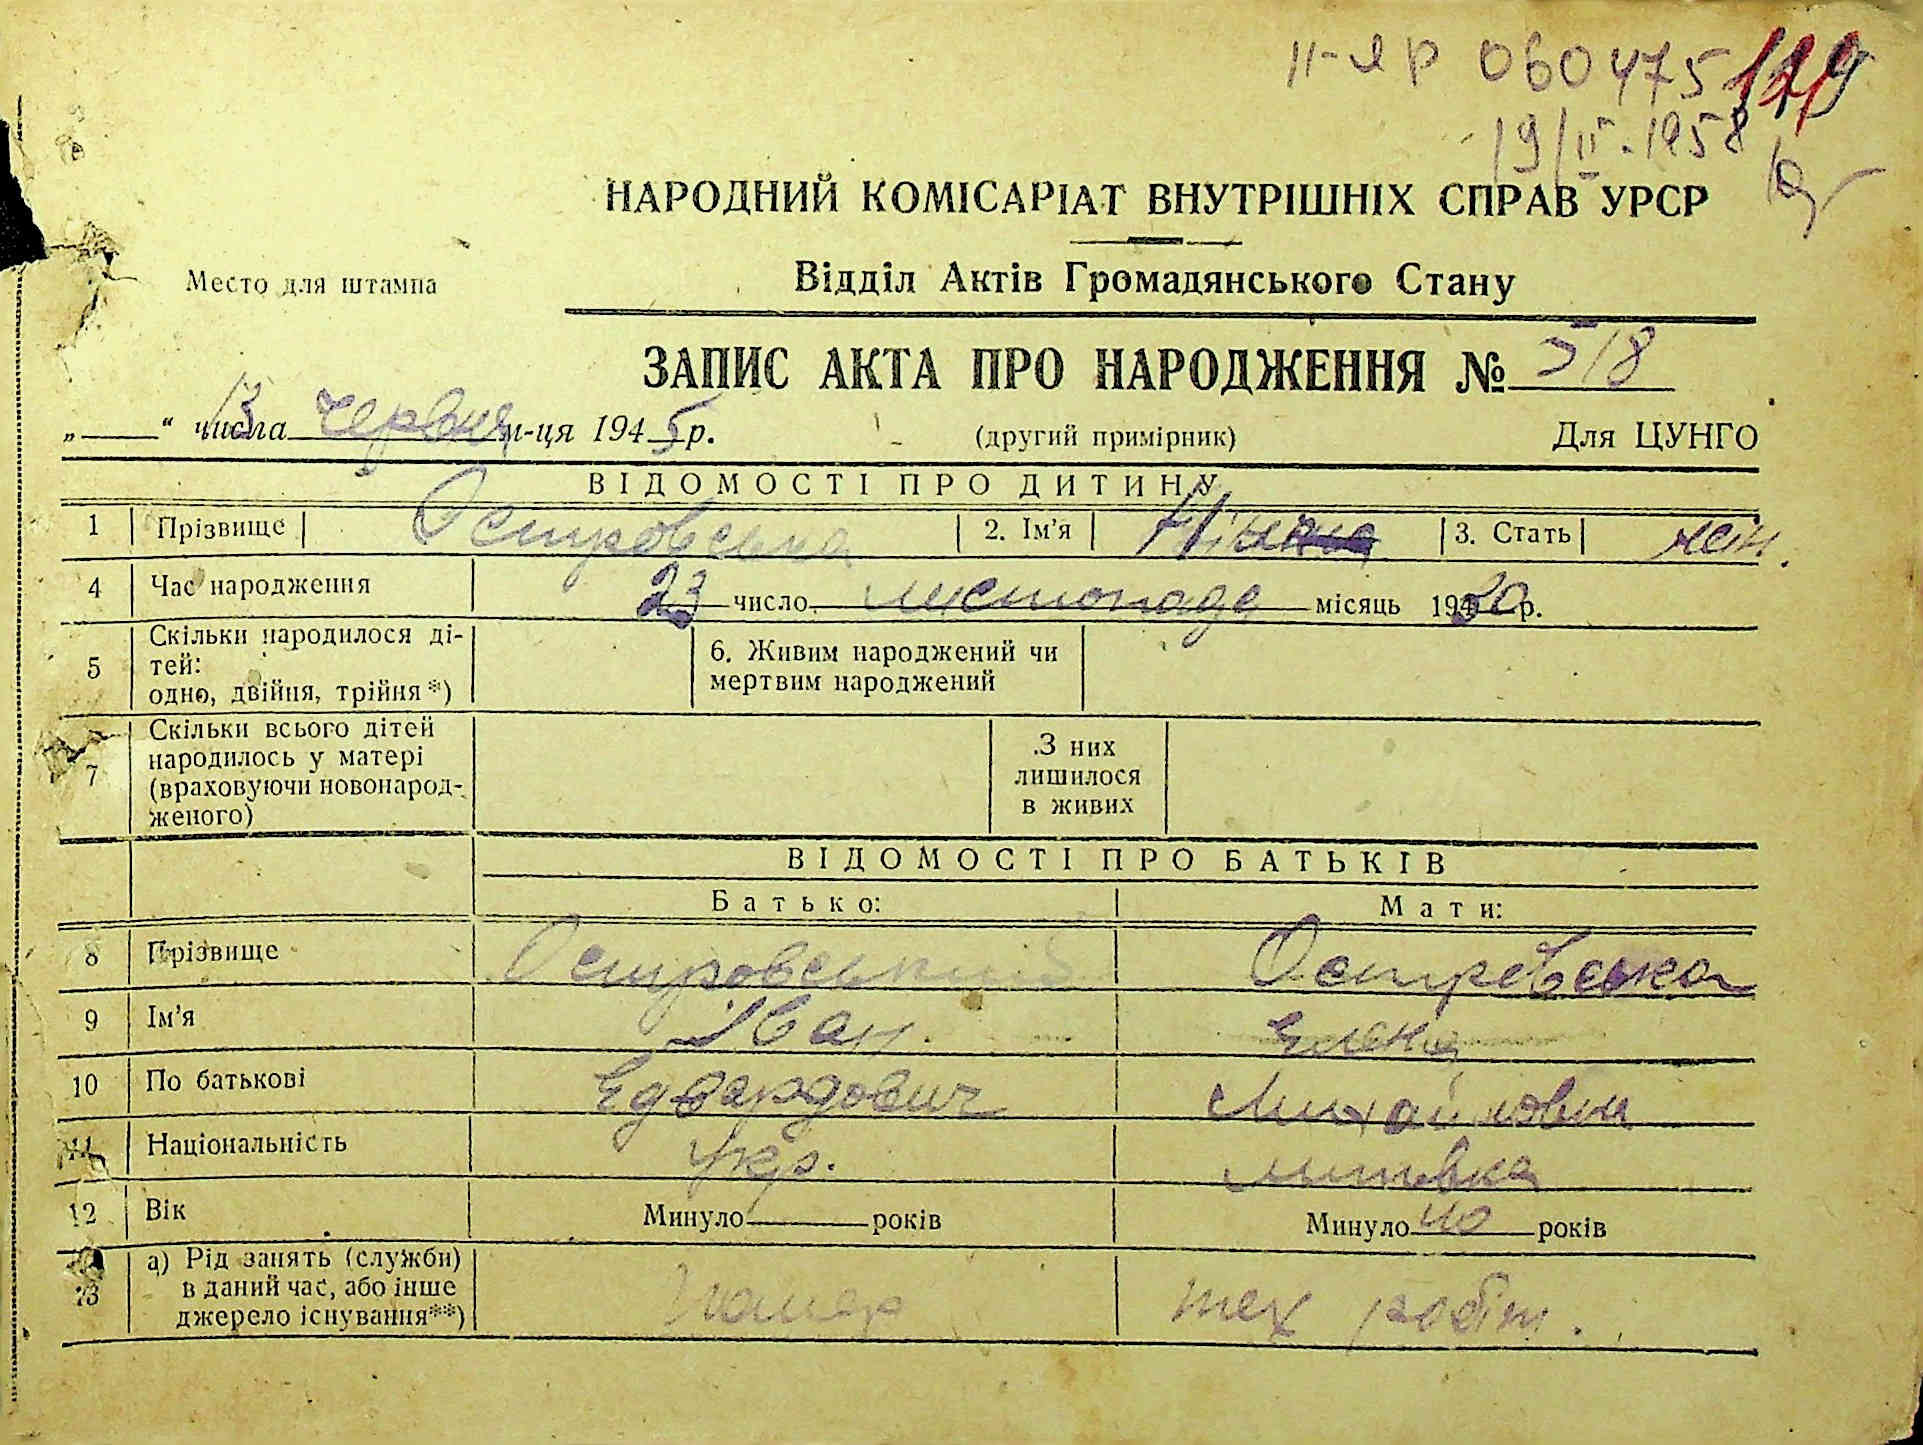 II-ЯР 060475 119
19/II.1958
НАРОДНИЙ КОМІСАРІАТ ВНУТРІШНІХ СПРАВ УРСР
Место для штампа
Відділ Актів Громадянського Стану
ЗАПИС АКТА ПРО НАРОДЖЕННЯ № 518
„ “ числа 13 червня м-ця 1945 р. (другий примірник) Для ЦУНГО
ВІДОМОСТІ ПРО ДИТИНУ
1 Прізвище Островська 2. Ім’я Ніна 3. Стать жін.
4 Час народження 23 число листопада місяць 1930 р.
5 Скільки народилося ді-
тей:
одно, двійня, трійня*)
6. Живим народжений чи
мертвим народжений
7 Скільки всього дітей
народилось у матері
(враховуючи новонарод-
женого)
З них
лишилося
в живих
ВІДОМОСТІ ПРО БАТЬКІВ
Батько: Мати:
8 Прізвище Островський Островська
9 Ім’я Іван. Елена
10 По батькові Едвардович Михайловна
11 Національність укр. литовка
12 Вік Минуло років Минуло 40 років
13 а) Рід занять (служби)
в даний час, або інше
джерело існування**)
Помер тех робіт.